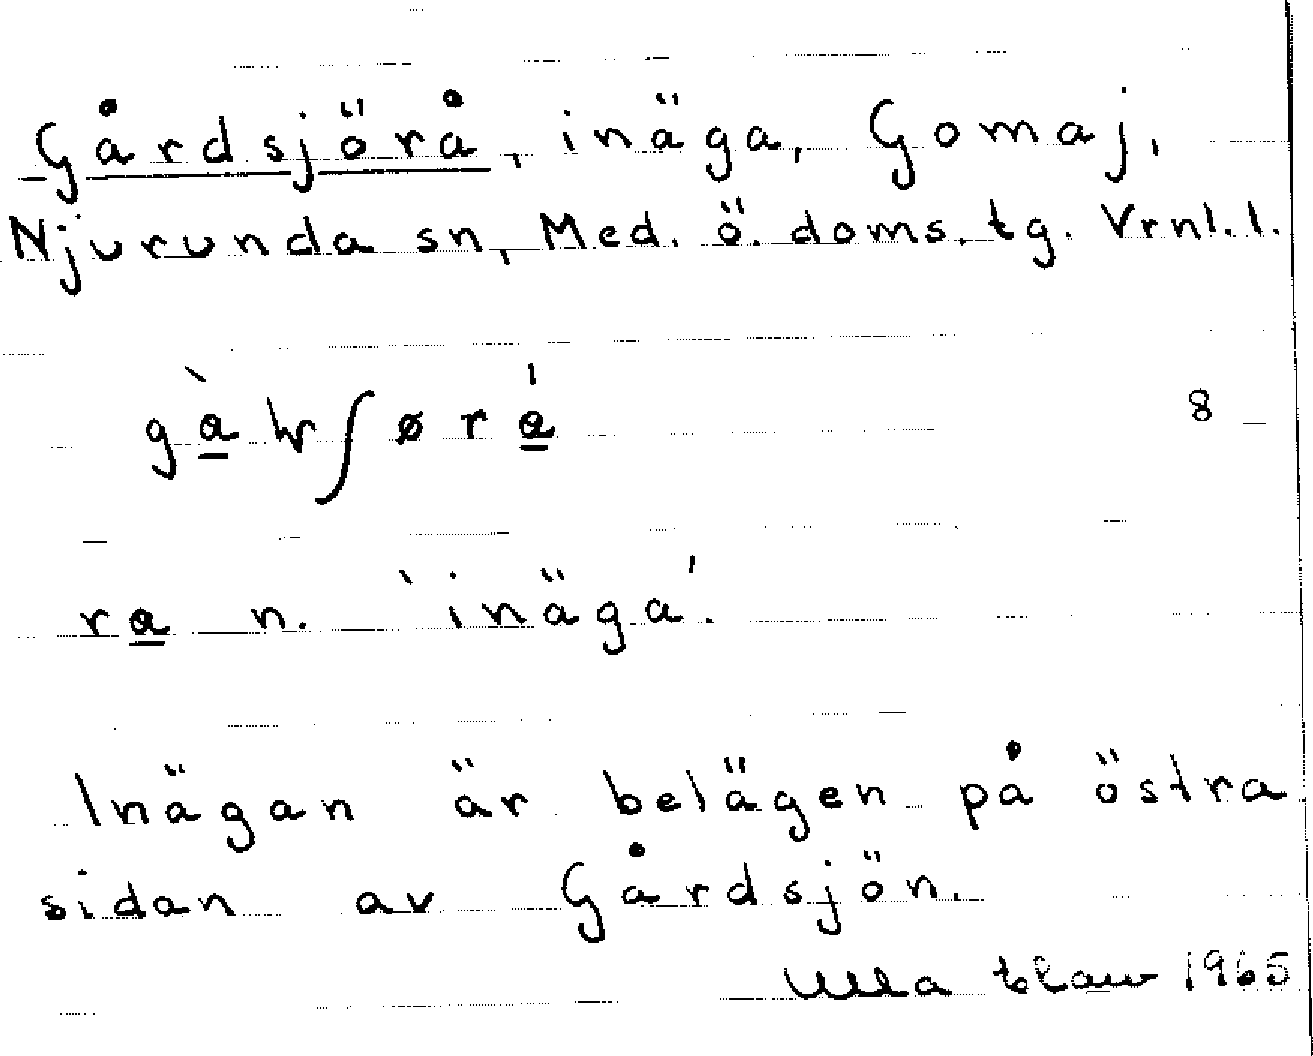 Gårdsjörå, inäga, Gomaj,
Njurunda sn, Med. ö. doms. tg. Vrnl. l.
8
ra n. `inäga´.
Inägan är belägen på östra
sidan av Gårdsjön.
Ulla 1965